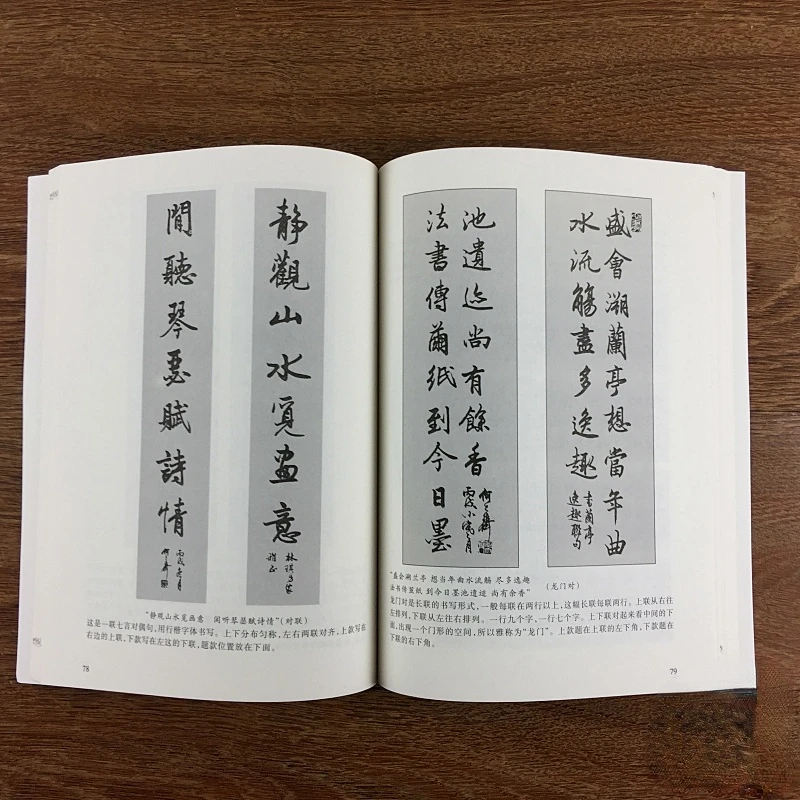 静觀山水覓畫意
閒聽琴瑟賦詩情
"静观山水觅画意　闲听琴瑟赋诗情"(对联)
这是一联七言对偶句，用行楷字体书写。上下分布匀称，左右两联对齐，上款写在
右边的上联，下款写在左这的下联，题款位置放在下面。
78
盛會溯蘭亭想當年曲
水流觴盡多逸趣
書蘭亭
逸趣聯句
法書傳繭紙到今日墨
池遺迹尚有餘香
"盛会溯兰亭 想当年曲水流觞 尽多逸趣
法书传茧纸 到今日墨池遗迹 尚有余香"
(龙门对)
龙门对是长联的书写形式，一般每联在两行以上，这幅长联每联两行。上联从右往
左排列，下联从左往右排列。一行九个字，一行七个字。上下联对起来看中间的下
面，出现一个门形的空间，所以雅称为"龙门"。上款题在上联的左下角，下款题在
下联的右下角。
79